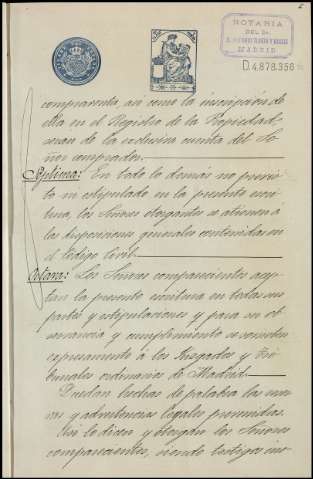 2
NOTARIA
DEL DR.
MADRID
D.4,878,356
compraventa, asi como la inscripción de
ella en el Registro de la Propiedad,
serán de la exclusiva cuenta del Se-
ñor comprador.
Séptima: En todo lo demás no previs-
to ni estipulado en la presente escri-
tura, los Señores otorgantes se atienen á
las disposiciones generales contenidas en
el Código Civil.
Octava: Los Señores comparecientes acep-
tan la presente escritura en todas sus
partes y estipulaciones y para su ob-
servancia y cumplimiento se someten
expresamente á los Juzgados y Tri-
bunales ordinarios de Madrid.
Quedan hechas de palabra las reser-
vas y advertencias legales prevenidas.
Asi lo dicen y otorgan los Señores
comparecientes, siendo testigos ins-